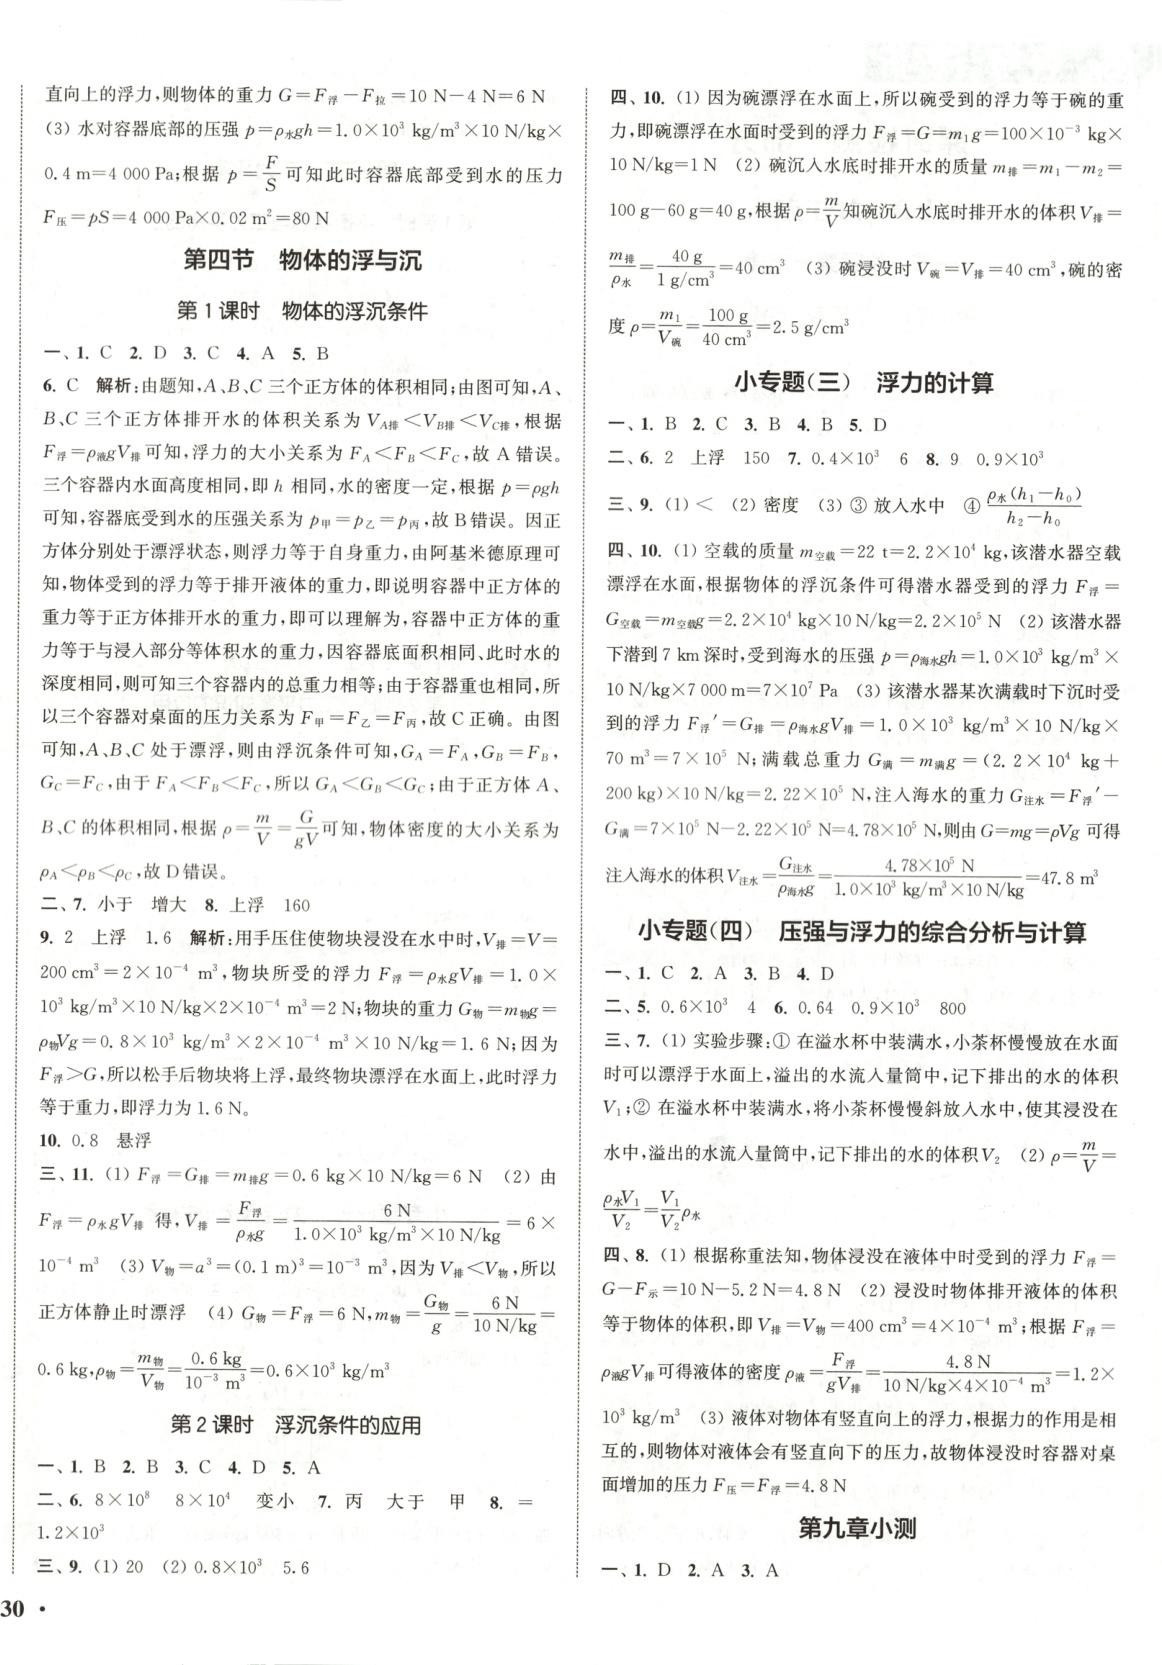 直向上的浮力,则物体的重力 G=F浮-F拉=10 N-4 N=6 N
(3) 水对容器底部的压强 p=ρ水gh=1.0×10³ kg/m³×10 N/kg×
0.4 m=4 000 Pa;根据 p=F/S 可知此时容器底部受到水的压力
F压=pS=4 000 Pa×0.02 m²=80 N
第四节 物体的浮与沉
第 1 课时 物体的浮沉条件
一、1. C 2. D 3. C 4. A 5. B
6. C 解析:由题知,A、B、C 三个正方体的体积相同;由图可知,A、
B、C 三个正方体排开水的体积关系为 VA排<VB排<VC排,根据
F浮=ρ液gV排可知,浮力的大小关系为 FA<FB<FC,故 A 错误。
三个容器内水面高度相同,即 h 相同,水的密度一定,根据 p=ρgh
可知,容器底受到水的压强关系为 p甲=p乙=p丙,故 B 错误。因正
方体分别处于漂浮状态,则浮力等于自身重力,由阿基米德原理可
知,物体受到的浮力等于排开液体的重力,即说明容器中正方体的
重力等于正方体排开水的重力,即可以理解为,容器中正方体的重
力等于与浸入部分等体积水的重力,因容器底面积相同、此时水的
深度相同,则可知三个容器内的总重力相等;由于容器重也相同,所
以三个容器对桌面的压力关系为 F甲=F乙=F丙,故 C 正确。由图
可知,A、B、C 处于漂浮,则由浮沉条件可知,GA=FA,GB=FB,
GC=FC,由于 FA<FB<FC,所以 GA<GB<GC;由于正方体 A、
B、C 的体积相同,根据 ρ=m/V=G/gV 可知,物体密度的大小关系为
ρA<ρB<ρC,故 D 错误。
二、7. 小于 增大 8. 上浮 160
9. 2 上浮 1.6 解析:用手压住使物块浸没在水中时,V排=V=
200 cm³=2×10⁻⁴ m³,物块所受的浮力 F浮=ρ水gV排=1.0×
10³ kg/m³×10 N/kg×2×10⁻⁴ m³=2 N;物块的重力 G物=m物g=
ρ物Vg=0.8×10³ kg/m³×2×10⁻⁴ m³×10 N/kg=1.6 N;因为
F浮>G,所以松手后物块将上浮,最终物块漂浮在水面上,此时浮力
等于重力,即浮力为 1.6 N。
10. 0.8 悬浮
三、11. (1) F浮=G排=m排g=0.6 kg×10 N/kg=6 N (2) 由
F浮=ρ水gV排 得,V排=F浮/ρ水g=6 N/(1.0×10³ kg/m³×10 N/kg)=6×
10⁻⁴ m³ (3) V物=a³=(0.1 m)³=10⁻³ m³,因为 V排<V物,所以
正方体静止时漂浮 (4) G物=F浮=6 N,m物=G物/g=6 N/(10 N/kg)=
0.6 kg,ρ物=m物/V物=0.6 kg/10⁻³ m³=0.6×10³ kg/m³
第 2 课时 浮沉条件的应用
一、1. B 2. B 3. C 4. D 5. A
二、6. 8×10⁸ 8×10⁴ 变小 7. 丙 大于 甲 8. =
1.2×10³
三、9. (1) 20 (2) 0.8×10³ 5.6
30 ·
四、10. (1) 因为碗漂浮在水面上,所以碗受到的浮力等于碗的重
力,即碗漂浮在水面时受到的浮力 F浮=G=m₁g=100×10⁻³ kg×
10 N/kg=1 N (2) 碗沉入水底时排开水的质量 m排=m₁-m₂=
100 g-60 g=40 g,根据 ρ=m/V 知碗沉入水底时排开水的体积 V排=
m排/ρ水=40 g/(1 g/cm³)=40 cm³ (3) 碗浸没时 V碗=V排=40 cm³,碗的密
度 ρ=m₁/V碗=100 g/40 cm³=2.5 g/cm³
小专题(三) 浮力的计算
一、1. B 2. C 3. B 4. B 5. D
二、6. 2 上浮 150 7. 0.4×10³ 6 8. 9 0.9×10³
三、9. (1) < (2) 密度 (3) ③ 放入水中 ④ ρ水(h₁-h₀)/(h₂-h₀)
四、10. (1) 空载的质量 m空载=22 t=2.2×10⁴ kg,该潜水器空载
漂浮在水面,根据物体的浮沉条件可得潜水器受到的浮力 F浮=
G空载=m空载g=2.2×10⁴ kg×10 N/kg=2.2×10⁵ N (2) 该潜水器
下潜到 7 km 深时,受到海水的压强 p=ρ海水gh=1.0×10³ kg/m³×
10 N/kg×7 000 m=7×10⁷ Pa (3) 该潜水器某次满载时下沉时受
到的浮力 F浮′=G排=ρ海水gV排=1.0×10³ kg/m³×10 N/kg×
70 m³=7×10⁵ N;满载总重力 G满=m满g=(2.2×10⁴ kg+
200 kg)×10 N/kg=2.22×10⁵ N,注入海水的重力 G注水=F浮′-
G满=7×10⁵ N-2.22×10⁵ N=4.78×10⁵ N,则由 G=mg=ρVg 可得
注入海水的体积 V注水=G注水/ρ海水g=4.78×10⁵ N/(1.0×10³ kg/m³×10 N/kg)=47.8 m³
小专题(四) 压强与浮力的综合分析与计算
一、1. C 2. A 3. B 4. D
二、5. 0.6×10³ 4 6. 0.64 0.9×10³ 800
三、7. (1) 实验步骤:① 在溢水杯中装满水,小茶杯慢慢放在水面
时可以漂浮于水面上,溢出的水流入量筒中,记下排出的水的体积
V₁;② 在溢水杯中装满水,将小茶杯慢慢斜放入水中,使其浸没在
水中,溢出的水流入量筒中,记下排出的水的体积 V₂ (2) ρ=m/V=
ρ水V₁/V₂=V₁/V₂ρ水
四、8. (1) 根据称重法知,物体浸没在液体中时受到的浮力 F浮=
G-F示=10 N-5.2 N=4.8 N (2) 浸没时物体排开液体的体积
等于物体的体积,即 V排=V物=400 cm³=4×10⁻⁴ m³;根据 F浮=
ρ液gV排可得液体的密度 ρ液=F浮/gV排=4.8 N/(10 N/kg×4×10⁻⁴ m³)=1.2×
10³ kg/m³ (3) 液体对物体有竖直向上的浮力,根据力的作用是相
互的,则物体对液体会有竖直向下的压力,故物体浸没时容器对桌
面增加的压力 F压=F浮=4.8 N
第九章小测
一、1. D 2. A 3. A